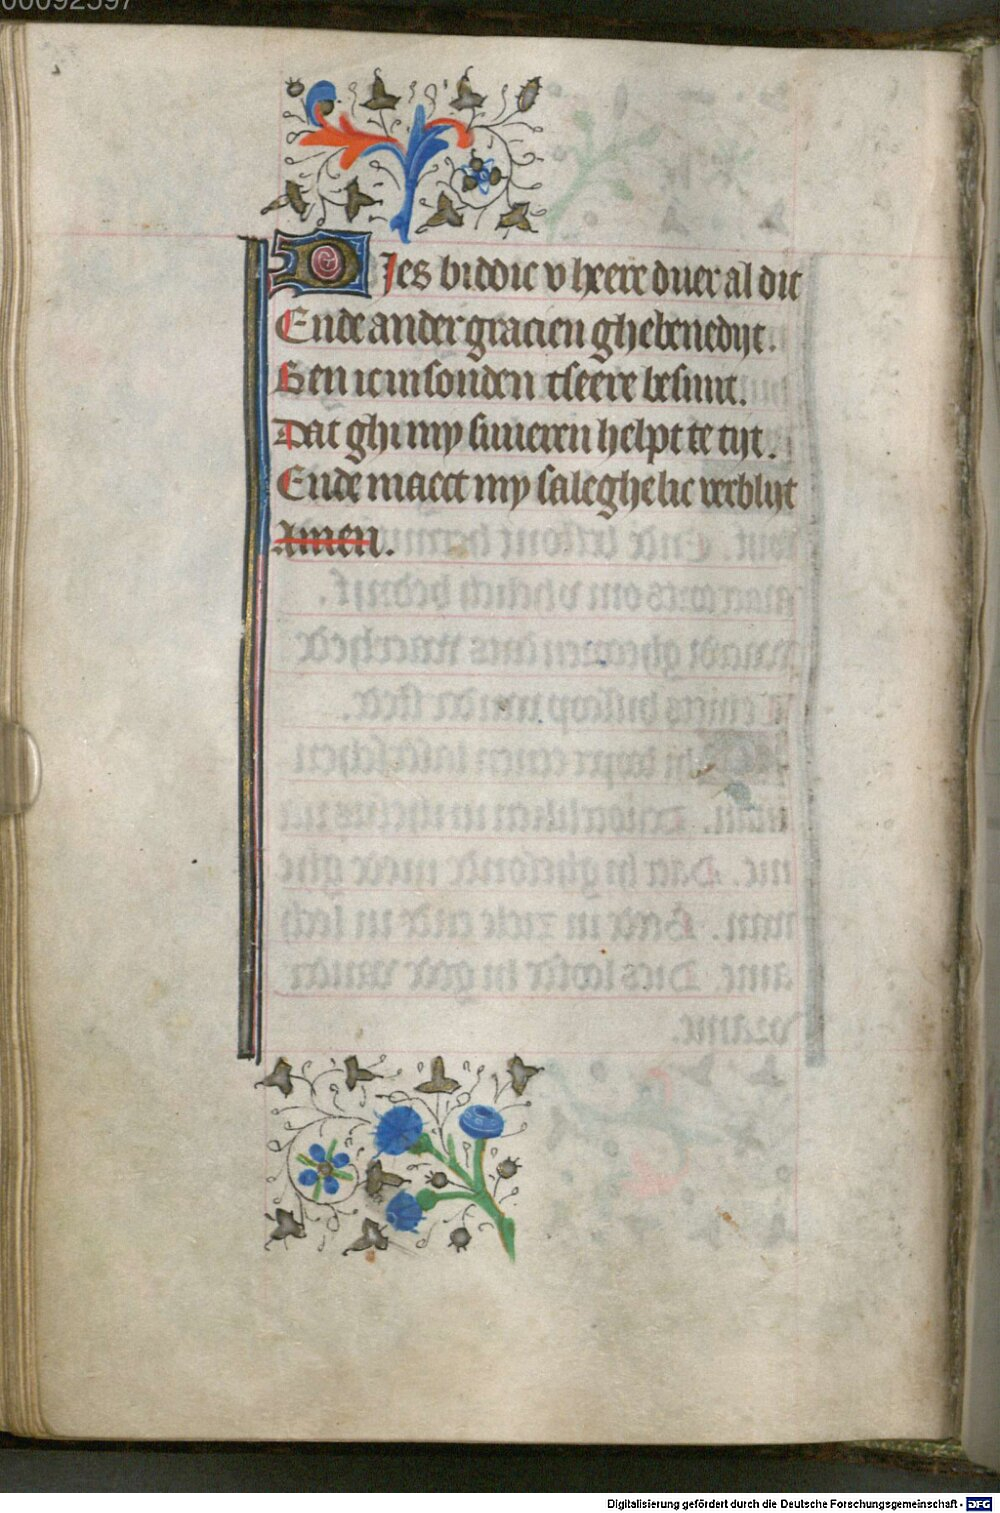 00092597
DIes biddic v heere ouer al dit
Ende ander gracien ghebenedijt.
Ben ic in sonden tseere besmit.
Dat ghi my suueren helpt te tijt.
Ende maect my saleghelic verblijt
Amen.
Digitalisierung gefördert durch die Deutsche Forschungsgemeinschaft - DFG